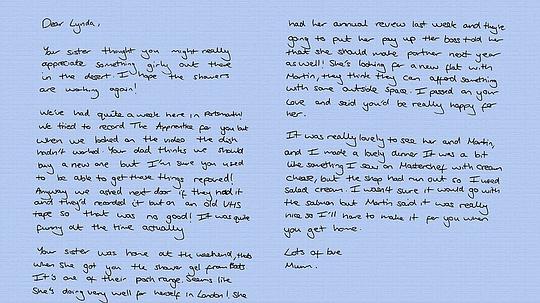 Dear Lynda,
Your sister thought you might really
appreciate something girly out there
in the desert. I hope the showers
are working again!
We've had quite a week here in Portsmouth!
We tried to record The Apprentice for you but
when we looked on the video the dish
hadn't worked. Your dad thinks we should
buy a new one but I'm sure you used
to be able to get these things repaired!
Anyway we asked next door if they had it
and they'd recorded it but on an old VHS
tape so that was no good! It was quite
funny at the time actually
Your sister was home at the weekend, that's
when she got you the shower gel from Boots
It's one of their posh range. Seems like
She's doing very well for herself in London!, She
had her annual review last week and they're
going to put her pay up. Her boss told her
that she should make partner next year
as well! She's looking for a new flat with
Martin, they think they can afford something
with some outside space. I passed on your
Love and said you'd be really happy for
her.
It was really lovely to see her and Martin,
and I made a lovely dinner. It was a bit
like something I saw on Masterchef with cream
cheese, but the shop had run out so I used
Salad cream. I wasn't sure it would go with
the salmon but Martin said it was really
nice so I'll have to make it for you when
you get home.
Lots of love
Mum.